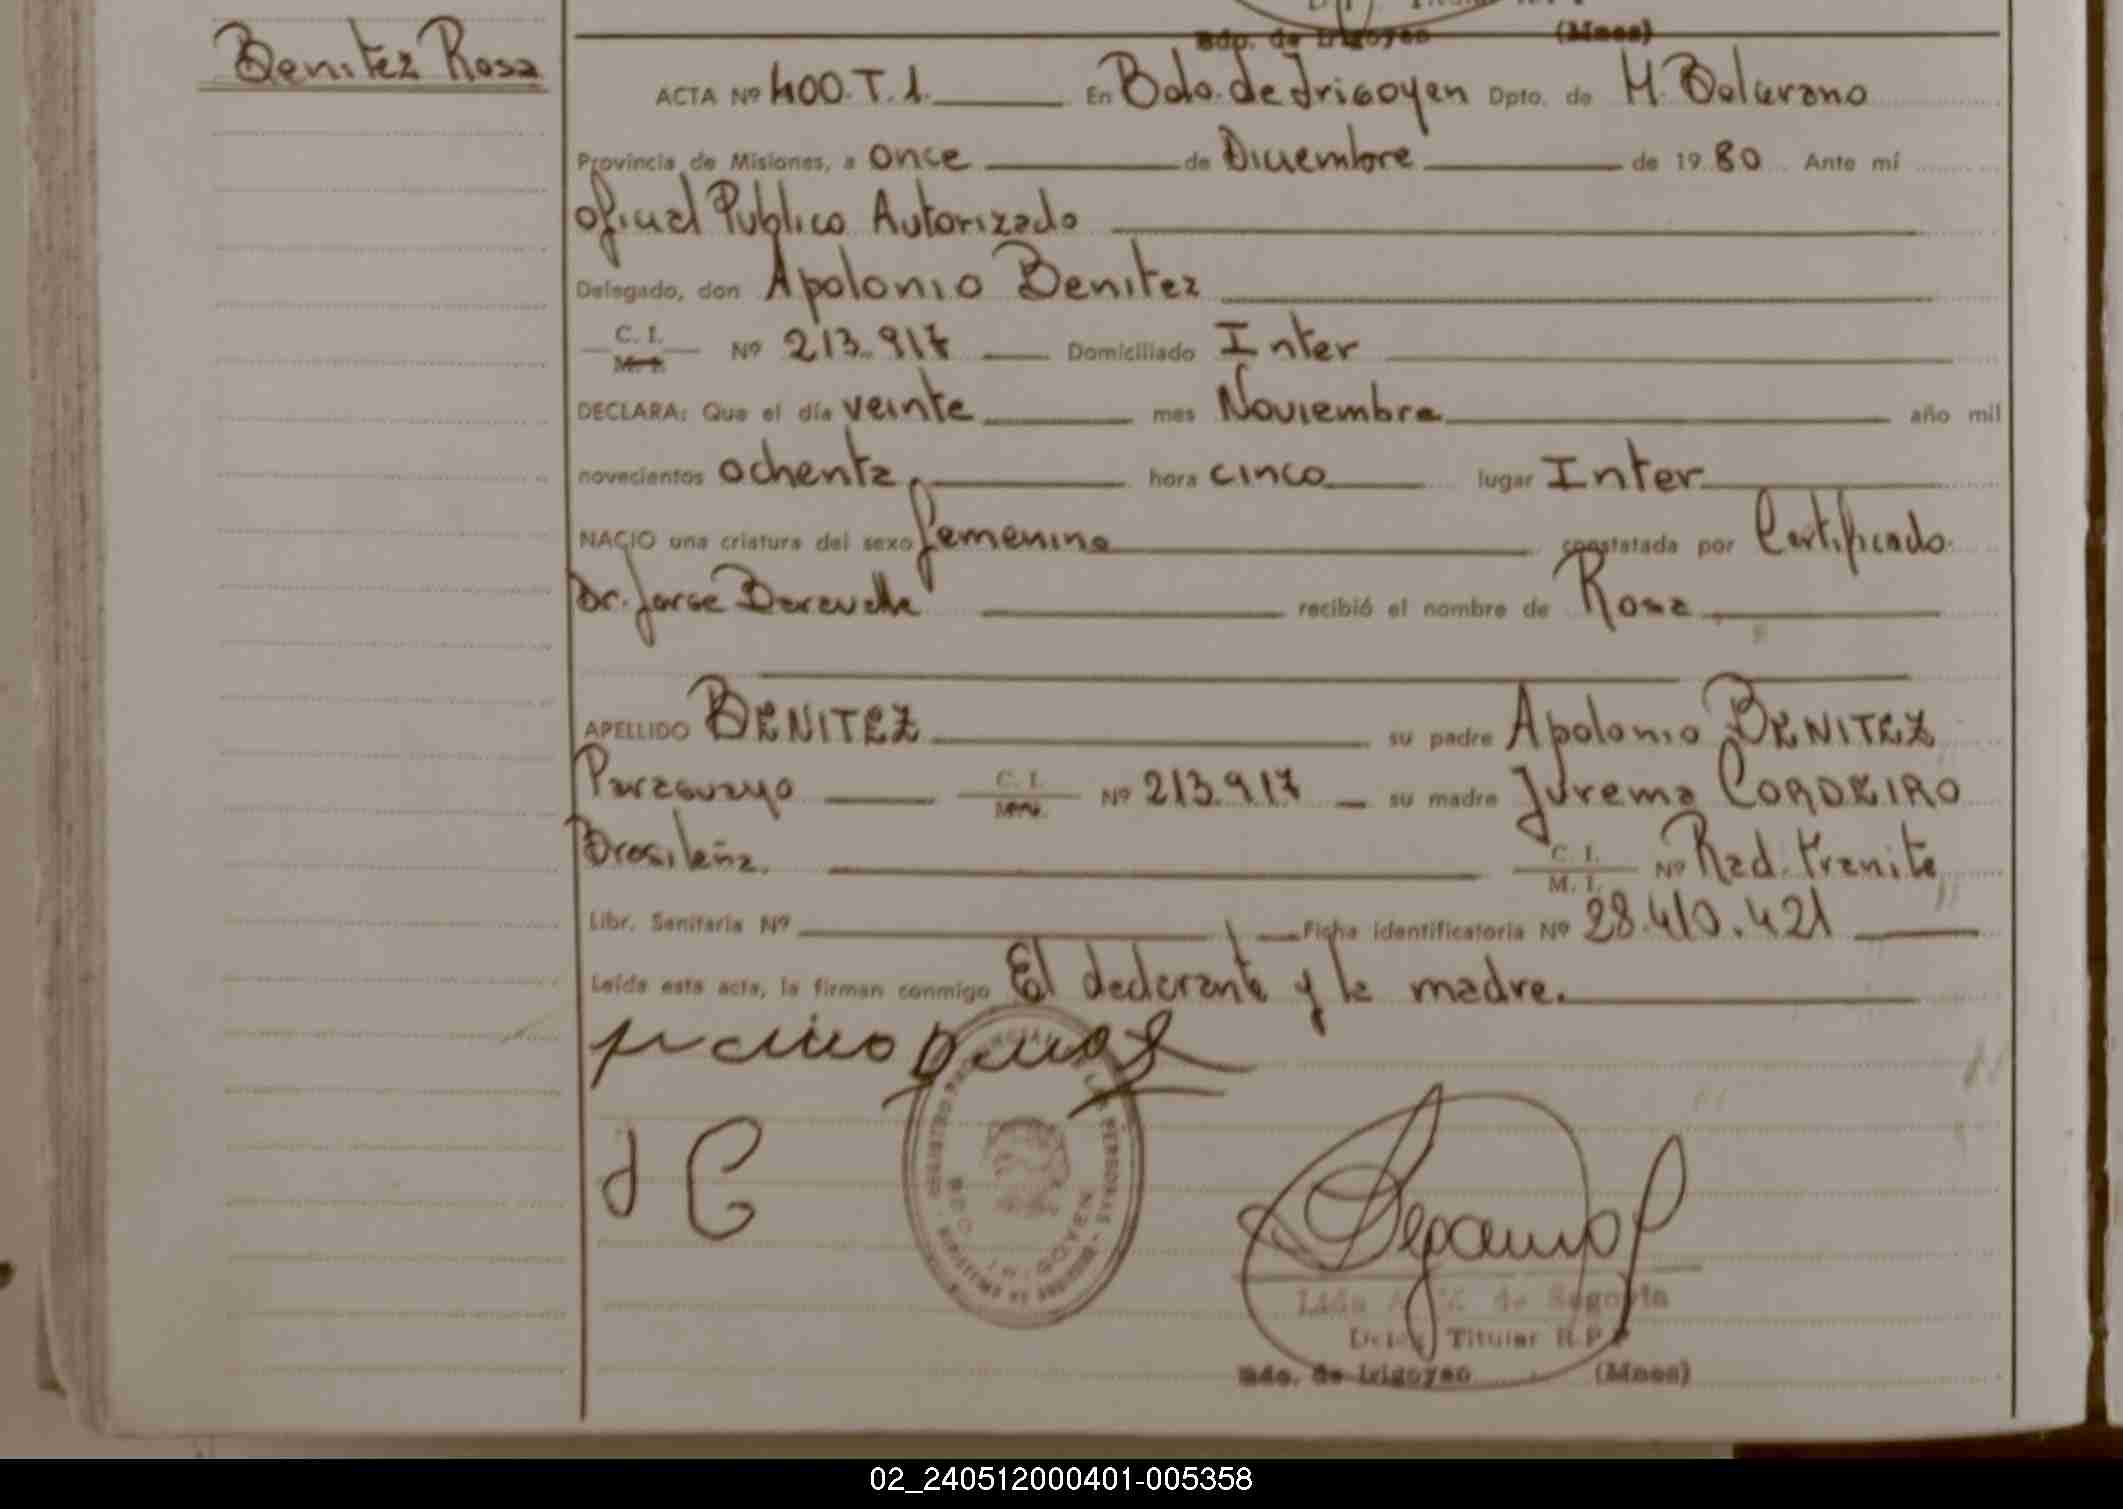 Benitez Rosa
Bdo. de Irigoyen (Mnes)
ACTA Nº 400.T.1. En Bdo. de Irigoyen Dpto. de M. Belgrano
Provincia de Misiones, a once de Diciembre de 1980 Ante mí
Oficial Publico Autorizado
Delegado, don Apolonio Benitez
C. I. M. I. Nº 213.917 Domiciliado Inter
DECLARA: Que el día veinte mes Noviembre año mil
novecientos ochenta, hora cinco lugar Inter
NACIO una criatura del sexo femenino constatada por Certificado
Dr. Jorge recibió el nombre de Rosa
APELLIDO BENITEZ su padre Apolonio BENITEZ
Paraguayo C. I. Nº 213.917 su madre Jurema CORDEIRO
Brasileña. C. I. M. I. Nº Rad. tramite
Libr. Sanitaria Nº Ficha identificatoria Nº 28.410.421
Leída esta acta, la firman conmigo El declarante y la madre.
J C
REGISTRO PROVINCIAL DE LAS PERSONAS
BDO. IRIGOYEN
de Segovia
Titular R.P.P
Bdo. de Irigoyen (Mnes)
02_240512000401-005358